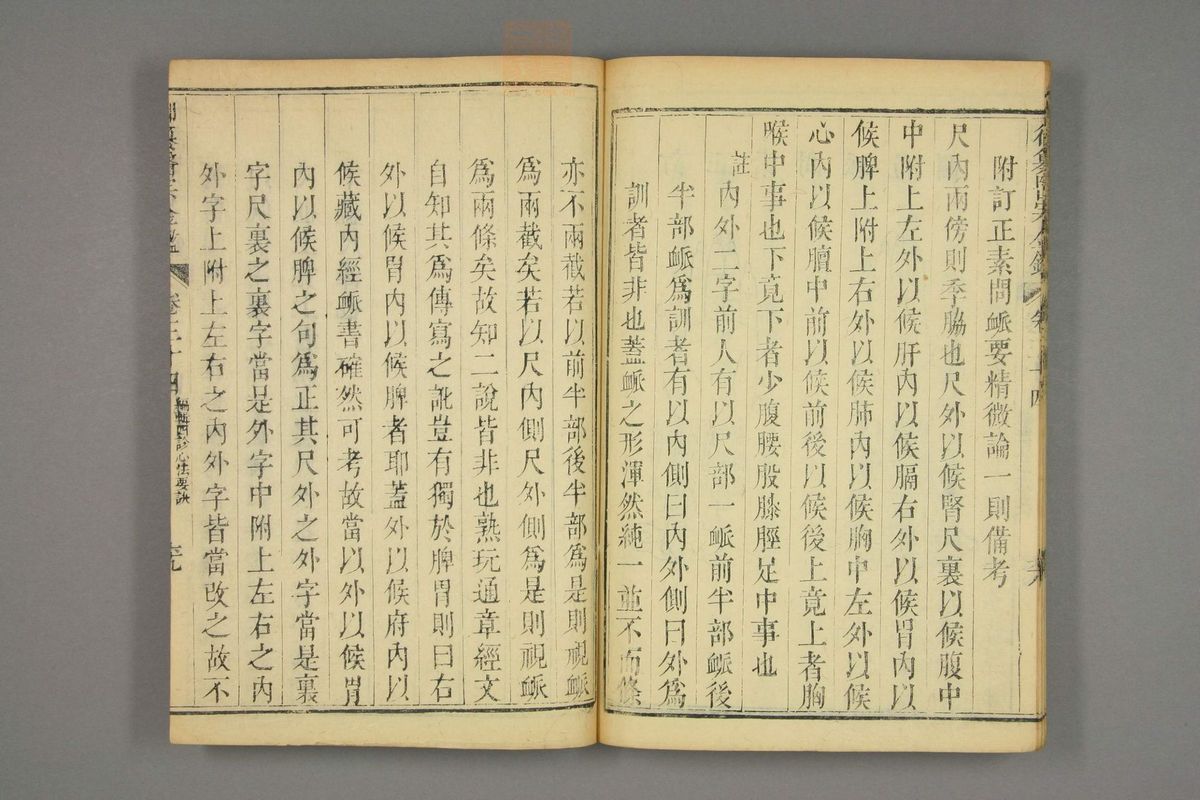 附訂正素問衇要精微論一則備考
尺內兩傍則季脇也尺外以候腎尺裏以候腹中
中附上左外以候肝內以候膈右外以候胃內以
候脾上附上右外以候肺內以候胸中左外以候
心內以候膻中前以候前後以候後上竟上者胸
喉中事也下竟下者少腹腰股膝脛足中事也
註內外二字前人有以尺部一衇前半部衇後
半部衇爲訓者有以內側曰內外側曰外爲
訓者皆非也蓋衇之形渾然純一並不兩條
亦不兩截若以前半部後半部爲是則視衇
爲兩截矣若以尺內側尺外側爲是則視衇
爲兩條矣故知二說皆非也熟玩通章經文
自知其爲傳寫之訛豈有獨於脾胃則曰右
外以候胃內以候脾者耶蓋外以候府內以
候藏內經衇書確然可考故當以外以候胃
內以候脾之句爲正其尺外之外字當是裏
字尺裏之裏字當是外字中附上左右之內
外字上附上左右之內外字皆當改之故不
卷三十四
編輯四診心法要訣